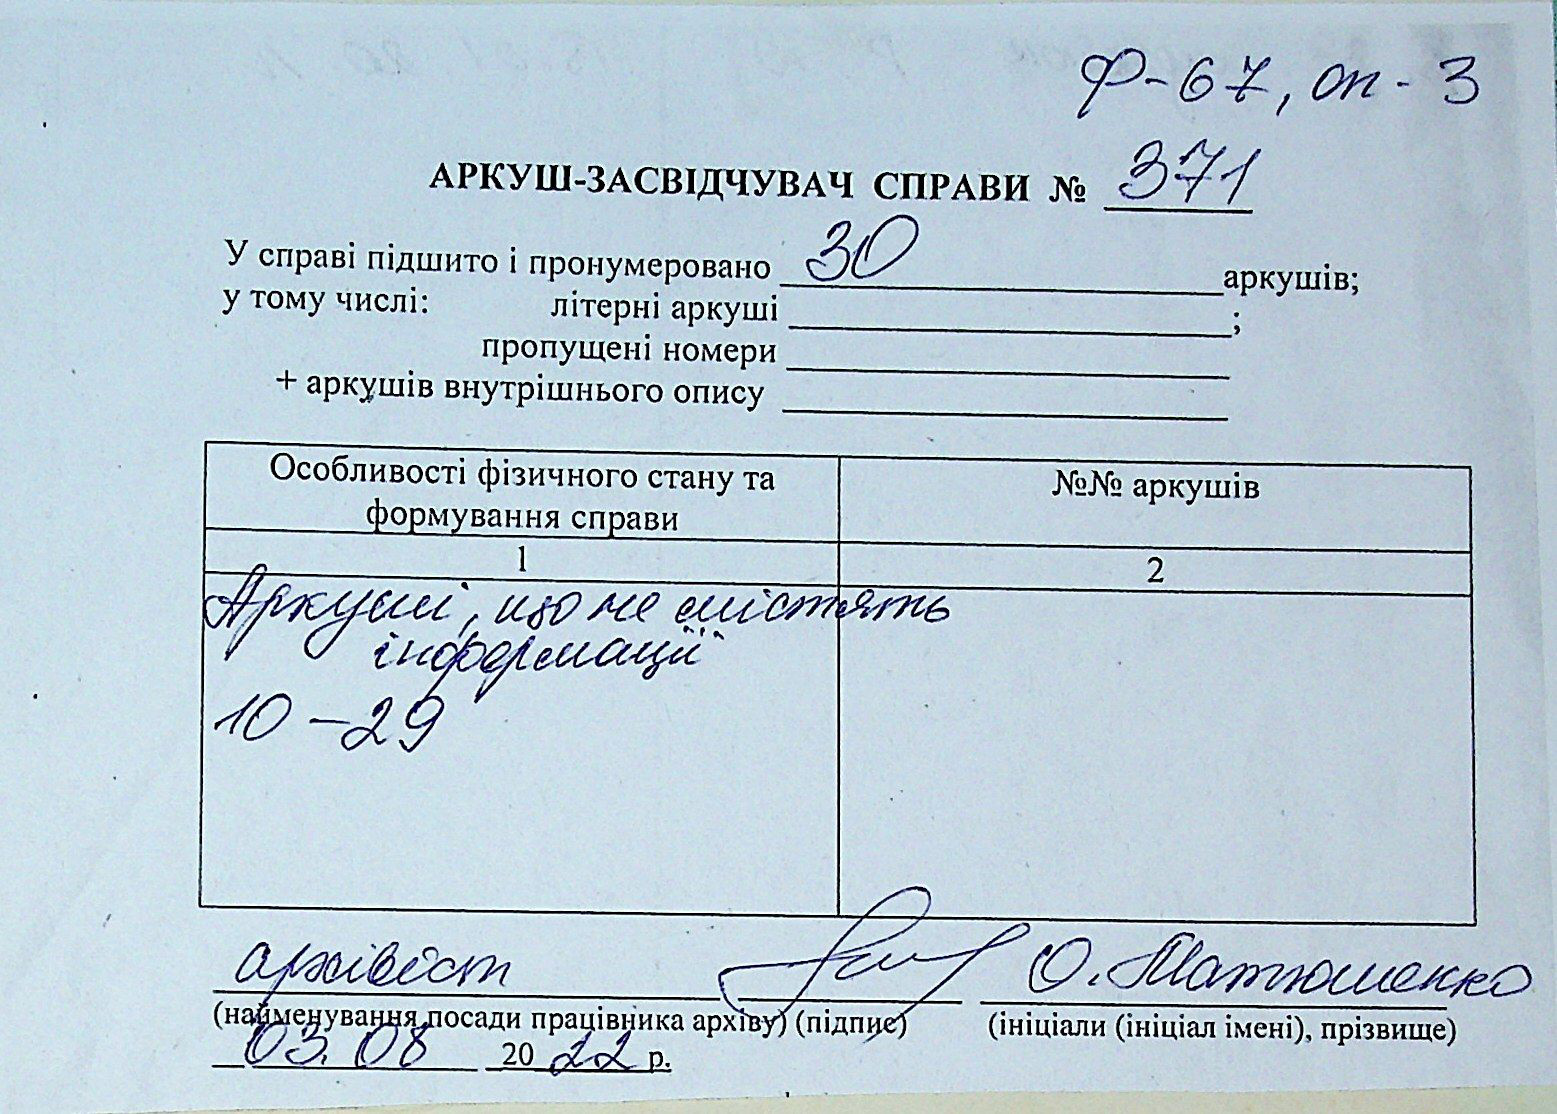 Ф-67, оп-3
АРКУШ-ЗАСВІДЧУВАЧ СПРАВИ № 371
У справі підшито і пронумеровано 30 аркушів;
у тому числі: літерні аркуші ;
пропущені номери
+ аркушів внутрішнього опису
Особливості фізичного стану та формування справи
№№ аркушів
1
2
Аркуші, що не містять
інформації
10-29
архівіст О. Матюшенко
(найменування посади працівника архіву) (підпис) (ініціали (ініціал імені), прізвище)
03.08 2022 р.